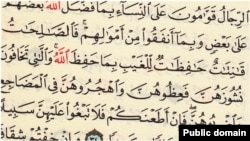 ٱلرِّجَالُ قَوَّٰمُونَ عَلَى ٱلنِّسَآءِ بِمَا فَضَّلَ ٱللَّهُ بَعْضَهُمْ
عَلَىٰ بَعْضٍ وَبِمَآ أَنفَقُوا۟ مِنْ أَمْوَٰلِهِمْ ۚ فَٱلصَّٰلِحَٰتُ
قَٰنِتَٰتٌ حَٰفِظَٰتٌ لِّلْغَيْبِ بِمَا حَفِظَ ٱللَّهُ ۚ وَٱلَّٰتِى تَخَافُونَ
نُشُوزَهُنَّ فَعِظُوهُنَّ وَٱهْجُرُوهُنَّ فِى ٱلْمَضَاجِعِ
فَإِنْ أَطَعْنَكُمْ فَلَا تَبْغُوا۟ عَلَيْهِنَّ سَبِيلًا
وَإِنْ خِفْتُمْ شِقَاقَ
Public domain